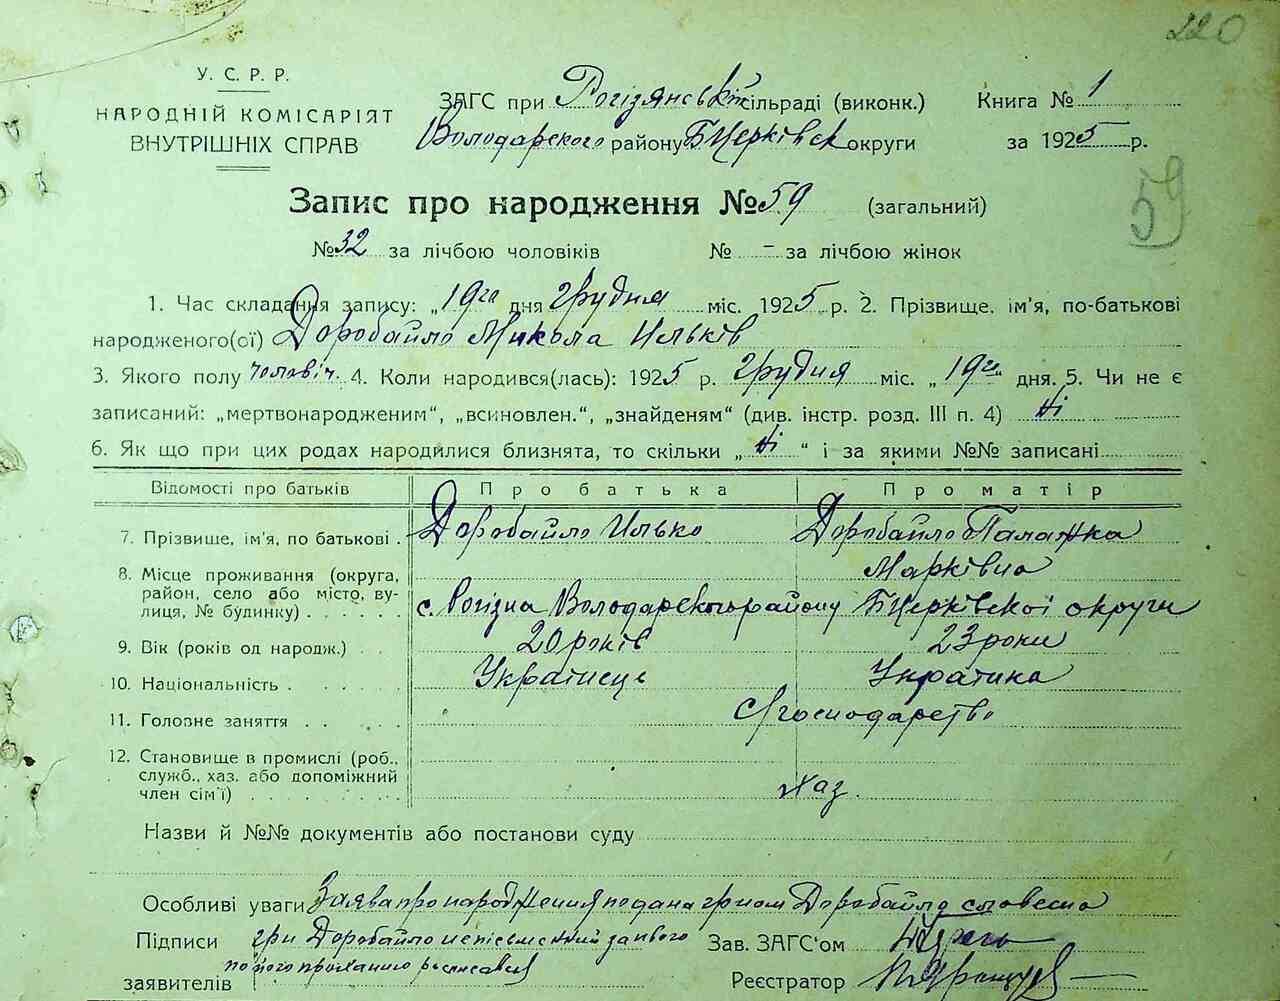 220
У. С. Р. Р.
НАРОДНІЙ КОМІСАРІЯТ
ВНУТРІШНІХ СПРАВ
ЗАГС при Рогізянській сільраді (виконк.)
Володарского району БЦерківськ округи
Книга № 1
за 1925 р.
Запис про народження № 59 (загальний)
59
№ 32 за лічбою чоловіків № – за лічбою жінок
1. Час складання запису: „19го дня грудня міс. 1925 р. 2. Прізвище, ім'я, по-батькові
народженого(ої) Доробайло Микола Ильків
3. Якого полу чоловіч. 4. Коли народився(лась): 1925 р. грудня міс. „19го" дня. 5. Чи не є
записаний: „мертвонародженим“, „всиновлен.“, „знайденям“ (див. інстр. розд. III п. 4) Ні
6. Як що при цих родах народилися близнята, то скільки „ Ні “ і за якими №№ записані
Відомості про батьків Про батька Про матір
7. Прізвише, ім'я, по батькові . Доробайло Илько Доробайло Палажка
Марківна
8. Місце проживання (округа,
район, село або місто, ву-
лиця, № будинку) . . . . . с. Рогізна Володарского району БЦерківскої округи
9. Вік (років од народж.) . . 20 років 23 роки
10. Національність . . . . . Українець Українка
11. Головне заняття . . . . . С/господарство
12. Становище в промислі (роб.,
служб., хаз. або допоміжний
член сім'ї) . . . . . . . . хаз.
Назви й №№ документів або постанови суду
Особливі уваги Заява про народження подана гр-ном Доробайло словесно
Підписи гр-н Доробайло неписьменний за нього
заявителів по його проханню росписався
Зав. ЗАГС'ом
Реєстратор